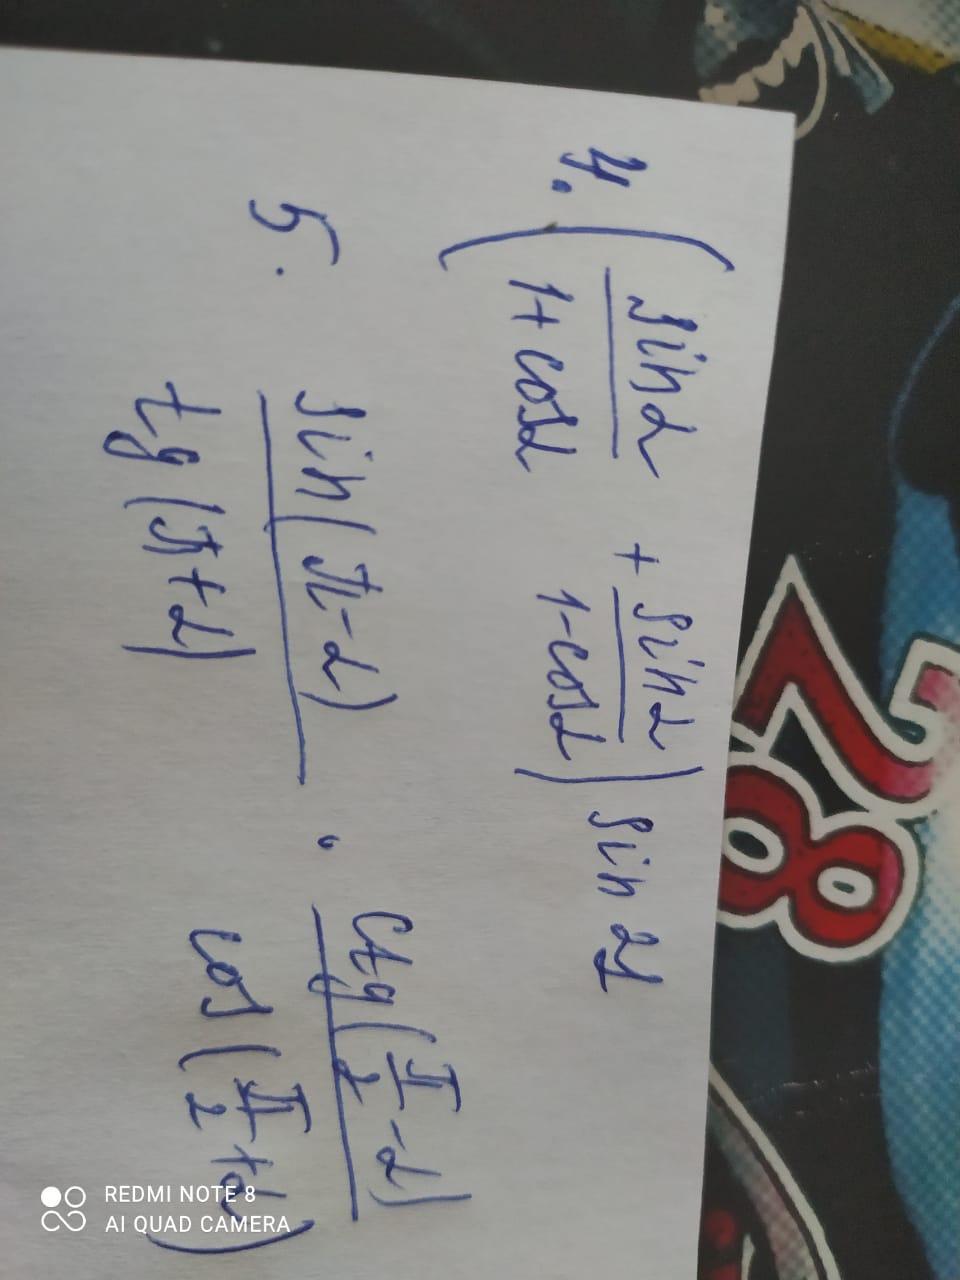 4. (sinα/(1+cosα) + sinα/(1-cosα)) sin 2α
5. sin(π-α)/tg(π+α) · ctg(π/2-α)/cos(π/2+α)
78
REDMI NOTE 8
AI QUAD CAMERA